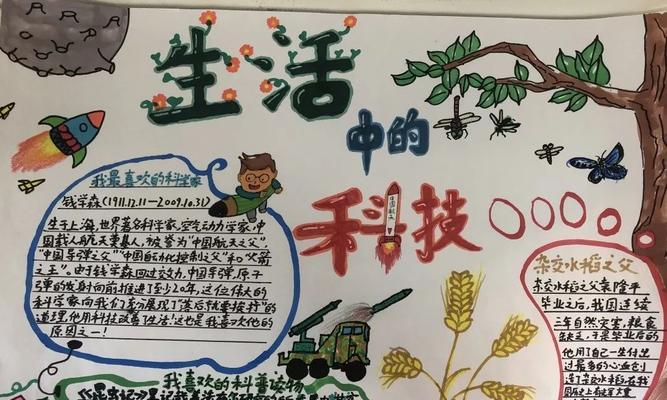 生活
中的
科技
我最喜欢的科学家
钱学森(1911.12.11—2009.10.31)
生于上海,世界著名科学家,空气动力学家,中
国载人航天奠基人,被誉为“中国航天之父”
“中国导弹之父”“中国自动化控制之父”和“火箭
之王”。由于钱学森回过交力,中国导弹、原子
弹的发射向前推进了至少20年,这位伟大的
科学家向我们充分展现了“落后就要挨打”的
道理,他用科技改善了生活!这也是我喜欢他的
原因之一!
我喜欢的科普读物
杂交水稻之父
杂交水稻之父袁隆平
毕业之后,我国连续
三年自然灾害,粮食
于是毕业后的
他用了自己一生付出
过最多的心血创
造了杂交水稻,在我